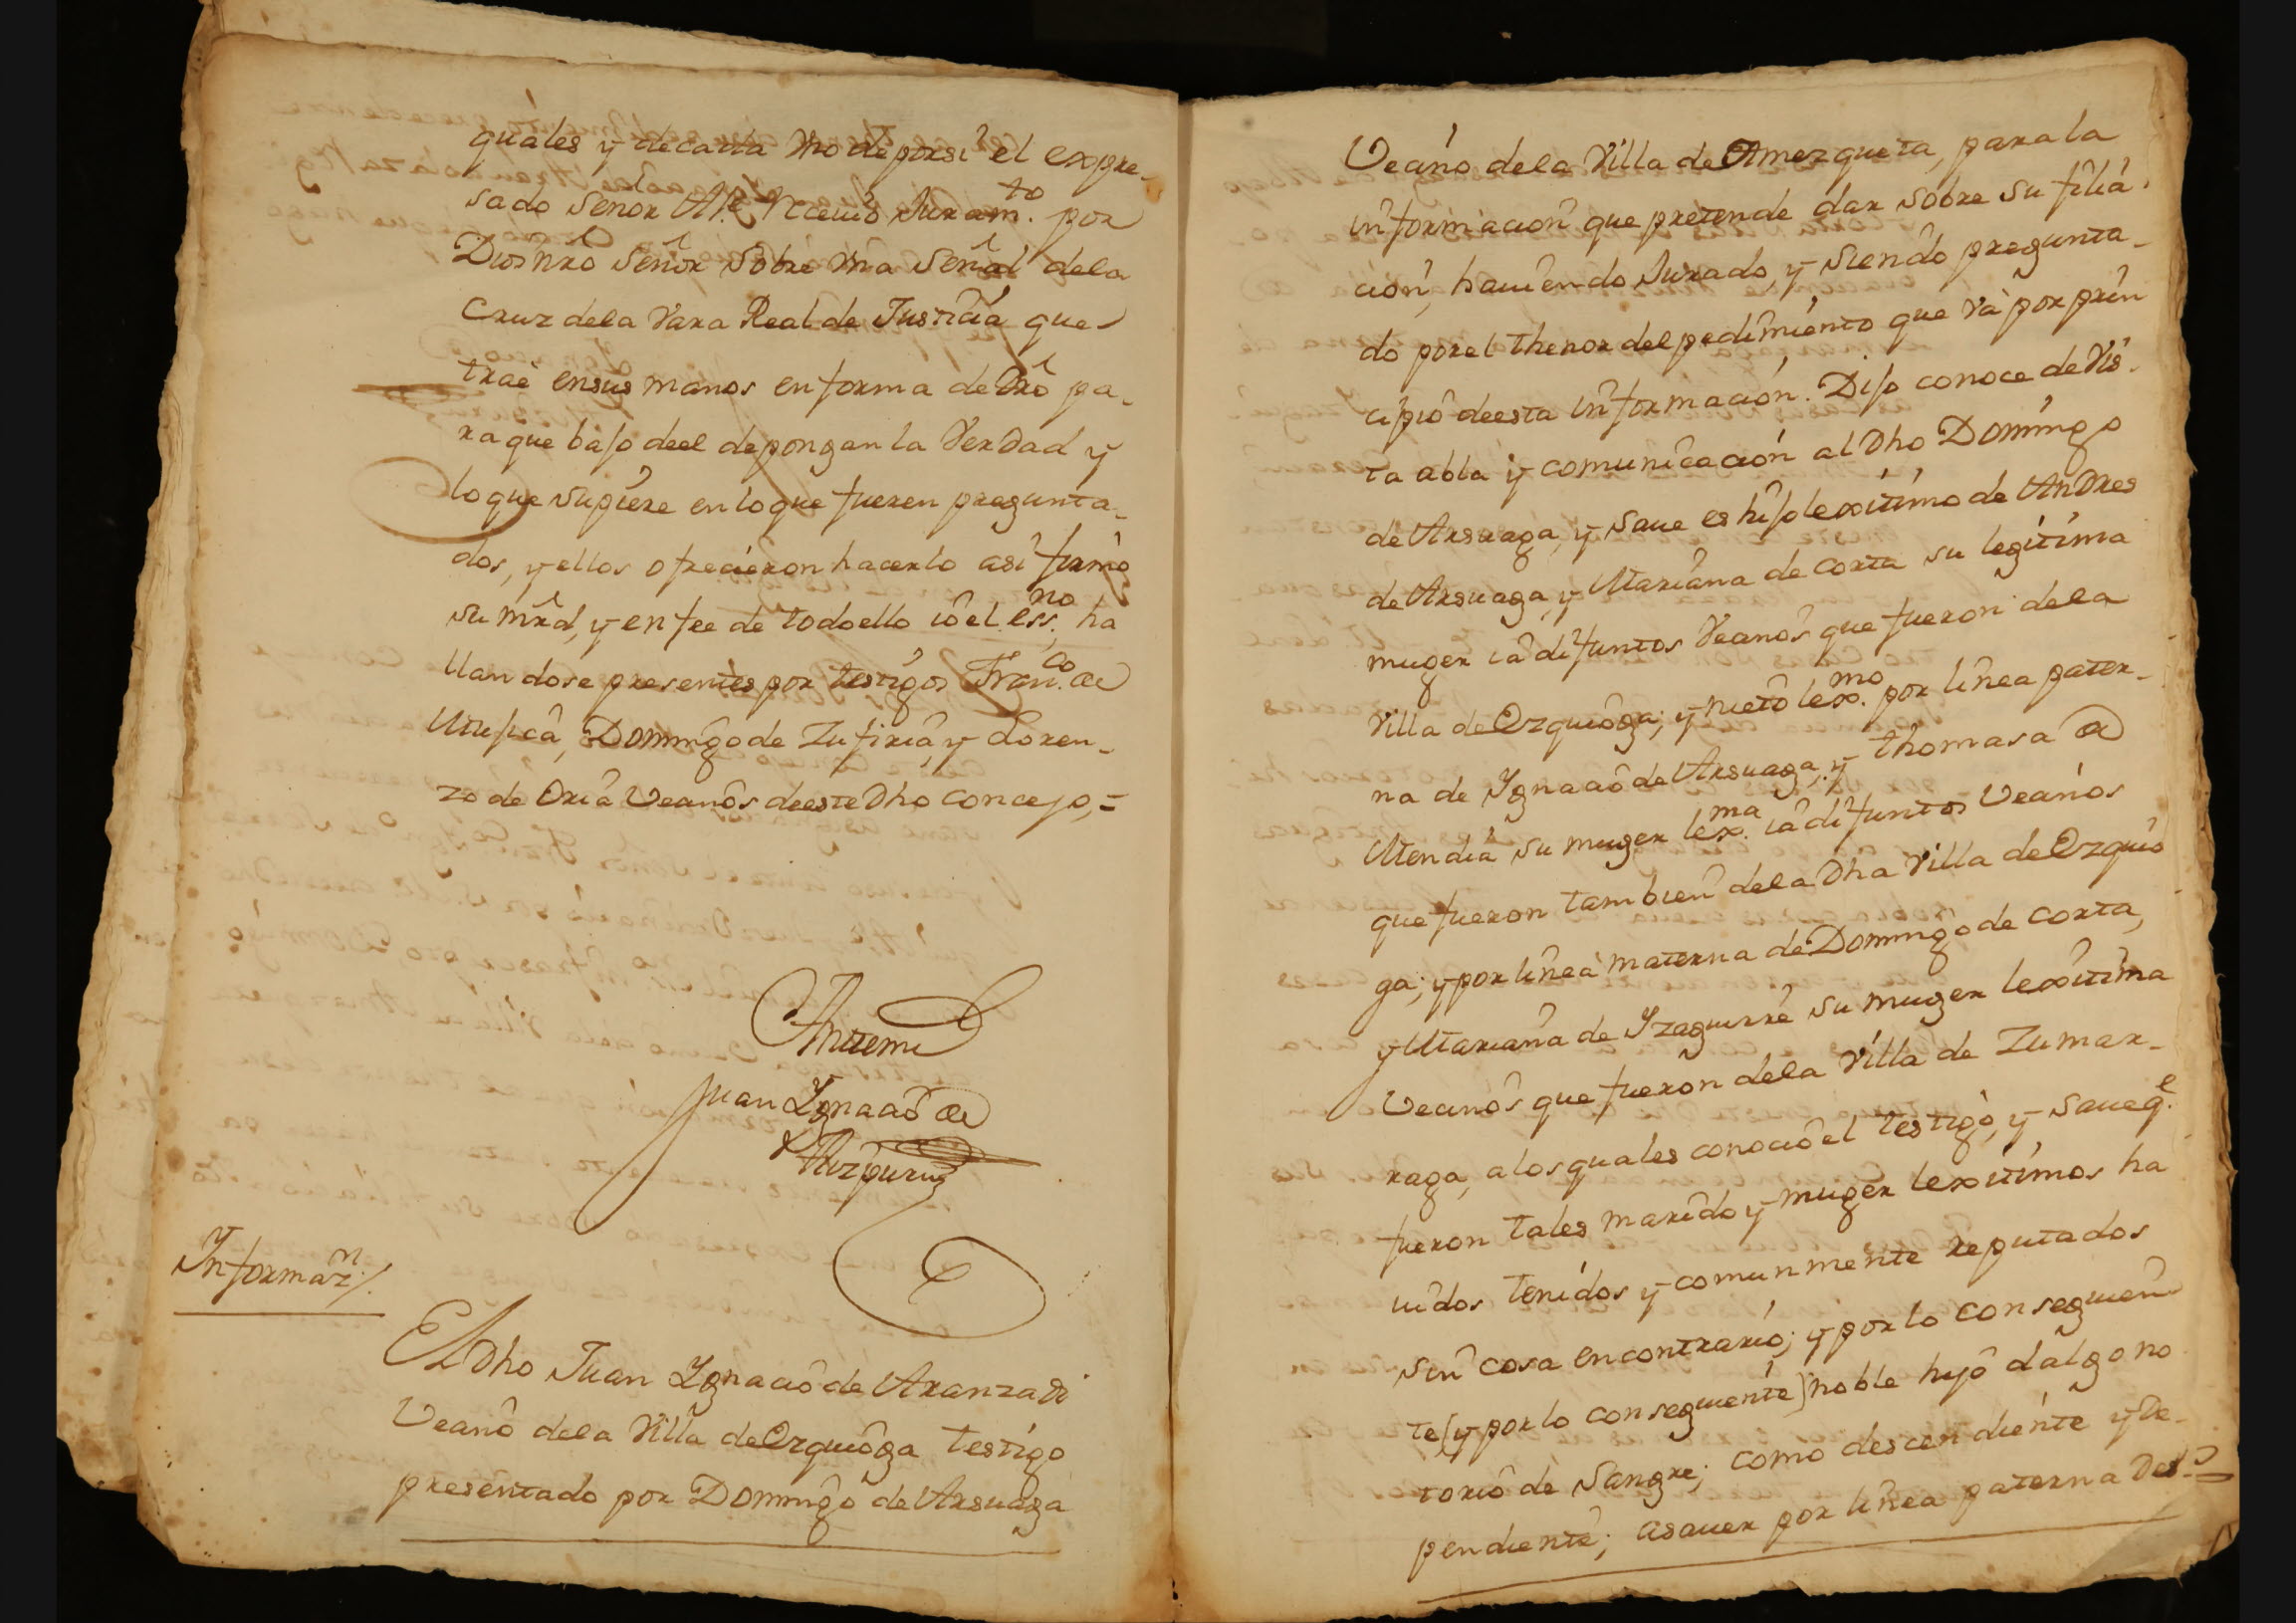 quales y de cada Uno de porsi el expre-
sado Señor Alc.e Reciuió Juram.to por
Dios nrô Señor sobre Una Señal dela
Cruz dela Vara Real de Justicia que
trae ensus manos en forma de Drô pa-
ra que bajo deel depongan la Verdad y
lo que supiere en lo que fueren pregunta-
dos, y ellos ofrecieron hacerlo asi firmó
su mrd, y en fee de todo ello io el ess.no ha
llandose presentes por testigos Fran.co de
Mujica, Domingo de Zufiria, y Loren-
zo de Oria Vecinos deeste Dho Concejo, =
Antemi
Juan Ignacio de
Aizpuru
Informaz.n /.
El Dho Juan Ignacio de Aranzadi
Vecino dela Villa de Ezquioga testigo
presentado por Domingo de Arsuaga
Vecino dela Villa de Amezqueta, para la
informacion que pretende dar sobre su filia-
ción, hauiendo Jurado, y siendo pregunta-
do por el thenor del pedimiento que va por prin
cipio deesta informacion. Dijo conoce de Vis-
ta abla y comunicacion al Dho Domingo
de Arsuaga, y saue es hijo lexitimo de Andres
de Arsuaga, y Mariana de Corta su legitima
muger ia difuntos Vecinos que fueron dela
Villa de Ezquioga; y nieto lex.mo por linea pater-
na de Ignacio de Arsuaga, y thomasa de
Mendia su muger lex.ma ia difuntos Vecinos
que fueron tambien dela Dha Villa de Ezquio
ga; y por linea materna de Domingo de Corta,
y Mariana de Izaguirre su muger lexitima
Vecinos que fueron dela Villa de Zumar-
raga, a los quales conoció el testigo, y saue q.e
fueron tales marido y muger lexitimos ha
uidos tenidos y comunmente reputados
sin cosa en contrario; y por lo conseguien
te (y por lo conseguiente) noble hijo dalgo no
torio de Sangre; como descendiente y De-
pendiente; asauer por linea paterna Del